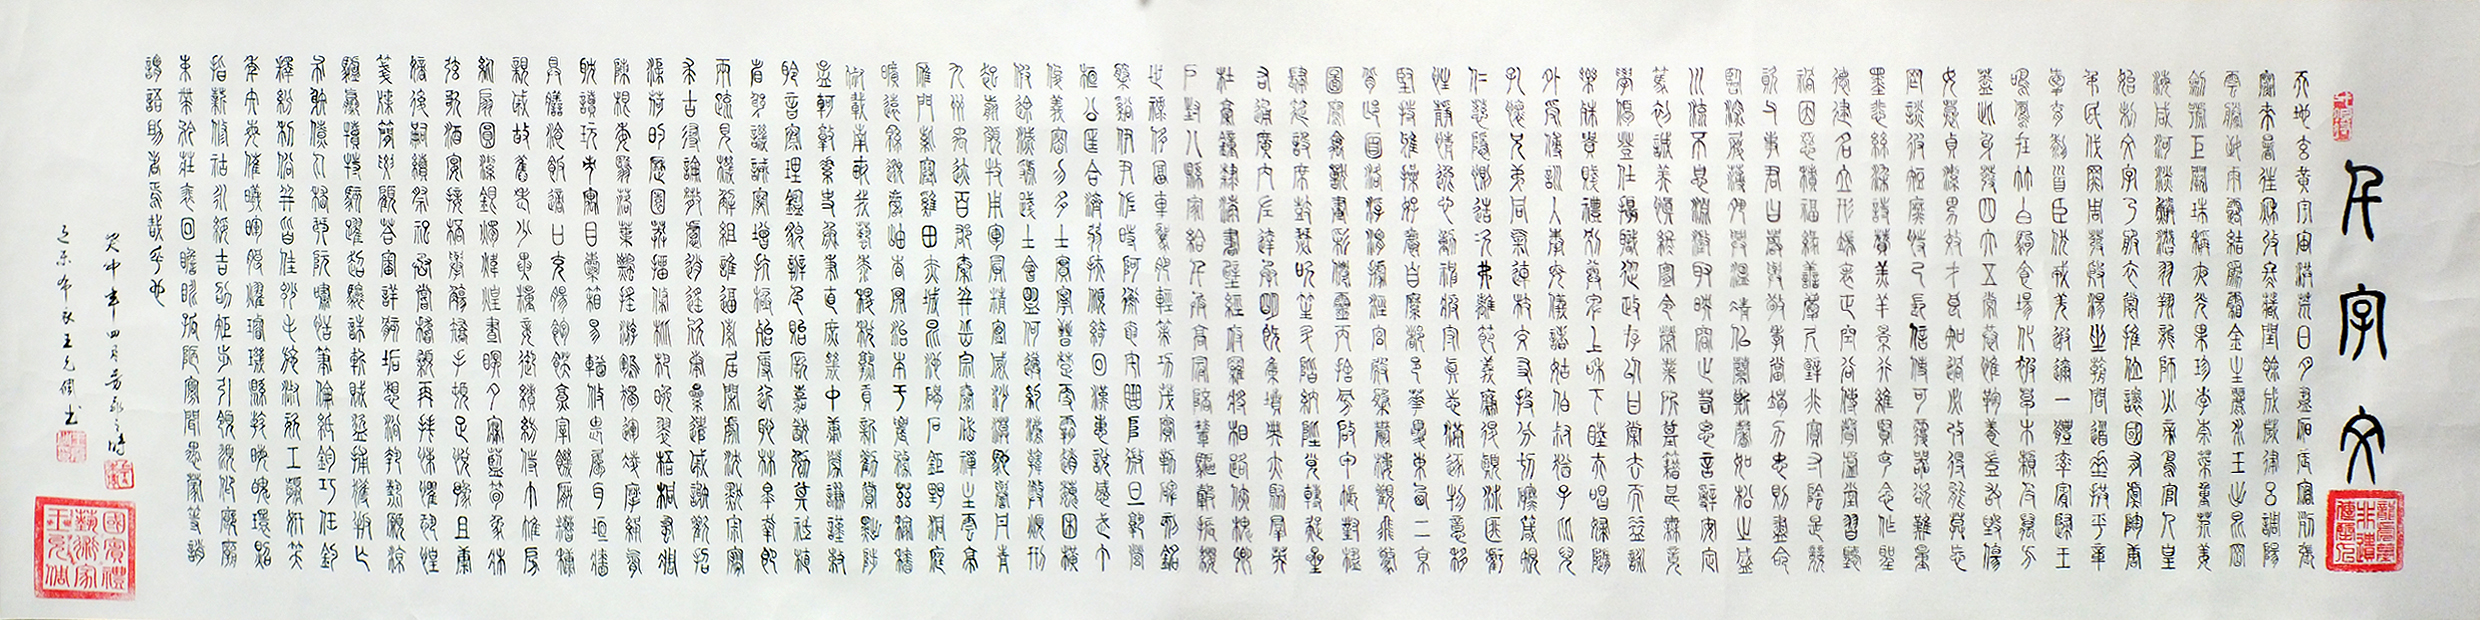 千字文
天地玄黃宇宙洪荒日月盈昃辰宿列張
寒來暑往秋收冬藏閏餘成歲律呂調陽
雲騰致雨露結為霜金生麗水玉出崑岡
劍號巨闕珠稱夜光果珍李柰菜重芥薑
海鹹河淡鱗潛羽翔龍師火帝鳥官人皇
始制文字乃服衣裳推位讓國有虞陶唐
弔民伐罪周發殷湯坐朝問道垂拱平章
愛育黎首臣伏戎羌遐邇一體率賓歸王
鳴鳳在竹白駒食場化被草木賴及萬方
蓋此身髮四大五常恭惟鞠養豈敢毀傷
女慕貞潔男效才良知過必改得能莫忘
罔談彼短靡恃己長信使可覆器欲難量
墨悲絲染詩讚羔羊景行維賢克念作聖
德建名立形端表正空谷傳聲虛堂習聽
禍因惡積福緣善慶尺璧非寶寸陰是競
資父事君曰嚴與敬孝當竭力忠則盡命
臨深履薄夙興溫凊似蘭斯馨如松之盛
川流不息淵澄取映容止若思言辭安定
篤初誠美慎終宜令榮業所基籍甚無竟
學優登仕攝職從政存以甘棠去而益詠
樂殊貴賤禮別尊卑上和下睦夫唱婦隨
外受傅訓入奉母儀諸姑伯叔猶子比兒
孔懷兄弟同氣連枝交友投分切磨箴規
仁慈隱惻造次弗離節義廉退顛沛匪虧
性靜情逸心動神疲守真志滿逐物意移
堅持雅操好爵自縻都邑華夏東西二京
背邙面洛浮渭據涇宮殿盤鬱樓觀飛驚
圖寫禽獸畫彩仙靈丙舍傍啟甲帳對楹
肆筵設席鼓瑟吹笙升階納陛弁轉疑星
右通廣內左達承明既集墳典亦聚群英
杜稿鍾隸漆書壁經府羅將相路俠槐卿
戶封八縣家給千兵高冠陪輦驅轂振纓
世祿侈富車駕肥輕策功茂實勒碑刻銘
磻溪伊尹佐時阿衡奄宅曲阜微旦孰營
桓公匡合濟弱扶傾綺回漢惠說感武丁
俊乂密勿多士寔寧晉楚更霸趙魏困橫
假途滅虢踐土會盟何遵約法韓弊煩刑
起翦頗牧用軍最精宣威沙漠馳譽丹青
九州禹跡百郡秦并嶽宗泰岱禪主云亭
雁門紫塞雞田赤城昆池碣石鉅野洞庭
曠遠綿邈巖岫杳冥治本於農務茲稼穡
俶載南畝我藝黍稷稅熟貢新勸賞黜陟
孟軻敦素史魚秉直庶幾中庸勞謙謹敕
聆音察理鑑貌辨色貽厥嘉猷勉其祗植
省躬譏誡寵增抗極殆辱近恥林皋幸即
兩疏見機解組誰逼索居閒處沉默寂寥
求古尋論散慮逍遙欣奏累遣慼謝歡招
渠荷的歷園莽抽條枇杷晚翠梧桐早凋
陳根委翳落葉飄颻游鵾獨運凌摩絳霄
耽讀玩市寓目囊箱易輶攸畏屬耳垣牆
具膳餐飯適口充腸飽飫烹宰飢厭糟糠
親戚故舊老少異糧妾御績紡侍巾帷房
紈扇圓潔銀燭煒煌晝眠夕寐藍筍象床
弦歌酒宴接杯舉觴矯手頓足悅豫且康
嫡後嗣續祭祀烝嘗稽顙再拜悚懼恐惶
箋牒簡要顧答審詳骸垢想浴執熱願涼
驢騾犢特駭躍超驤誅斬賊盜捕獲叛亡
布射僚丸嵇琴阮嘯恬筆倫紙鈞巧任釣
釋紛利俗並皆佳妙毛施淑姿工顰妍笑
年矢每催曦暉朗曜璇璣懸斡晦魄環照
指薪修祜永綏吉劭矩步引領俯仰廊廟
束帶矜莊徘徊瞻眺孤陋寡聞愚蒙等誚
謂語助者焉哉乎也